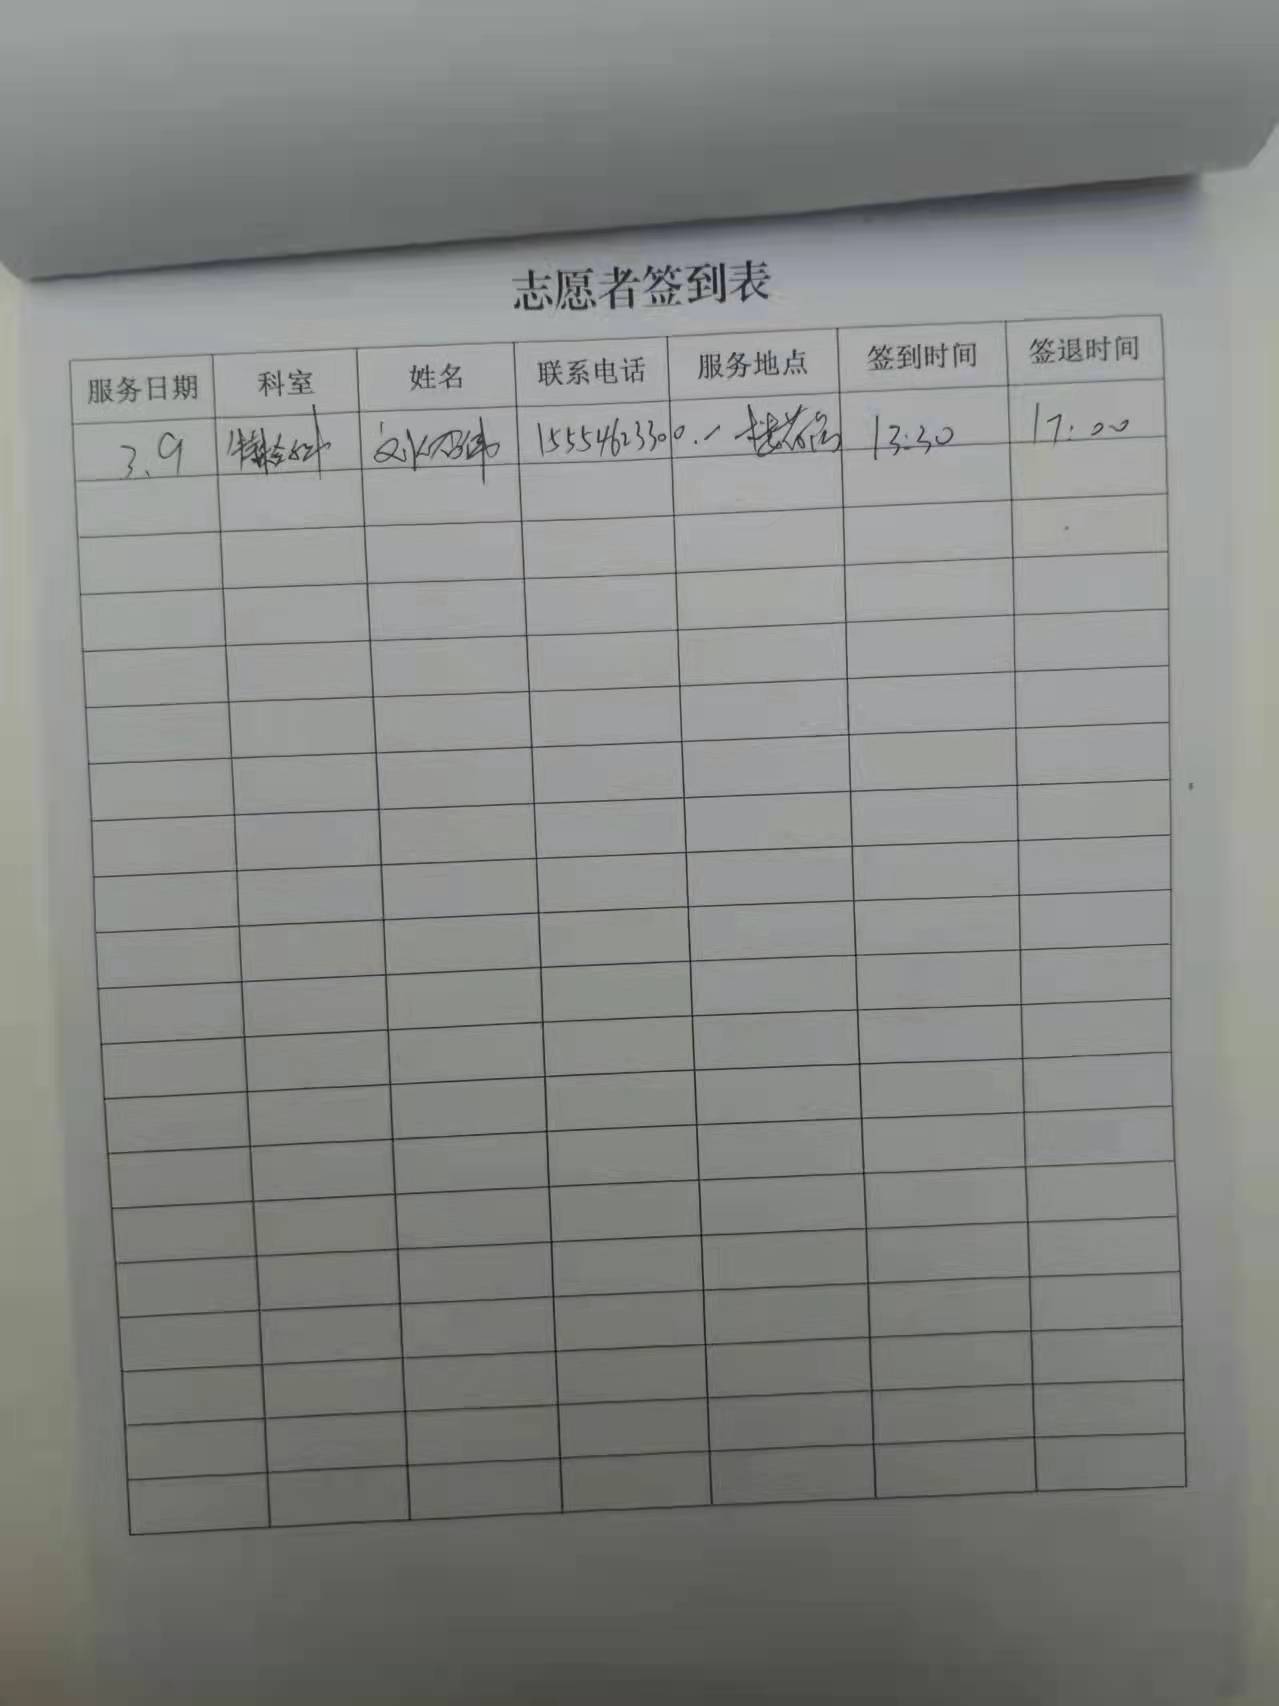 志愿者签到表
服务日期 科室 姓名 联系电话 服务地点 签到时间 签退时间
3.9 15554623300 一楼 13:30 17:00